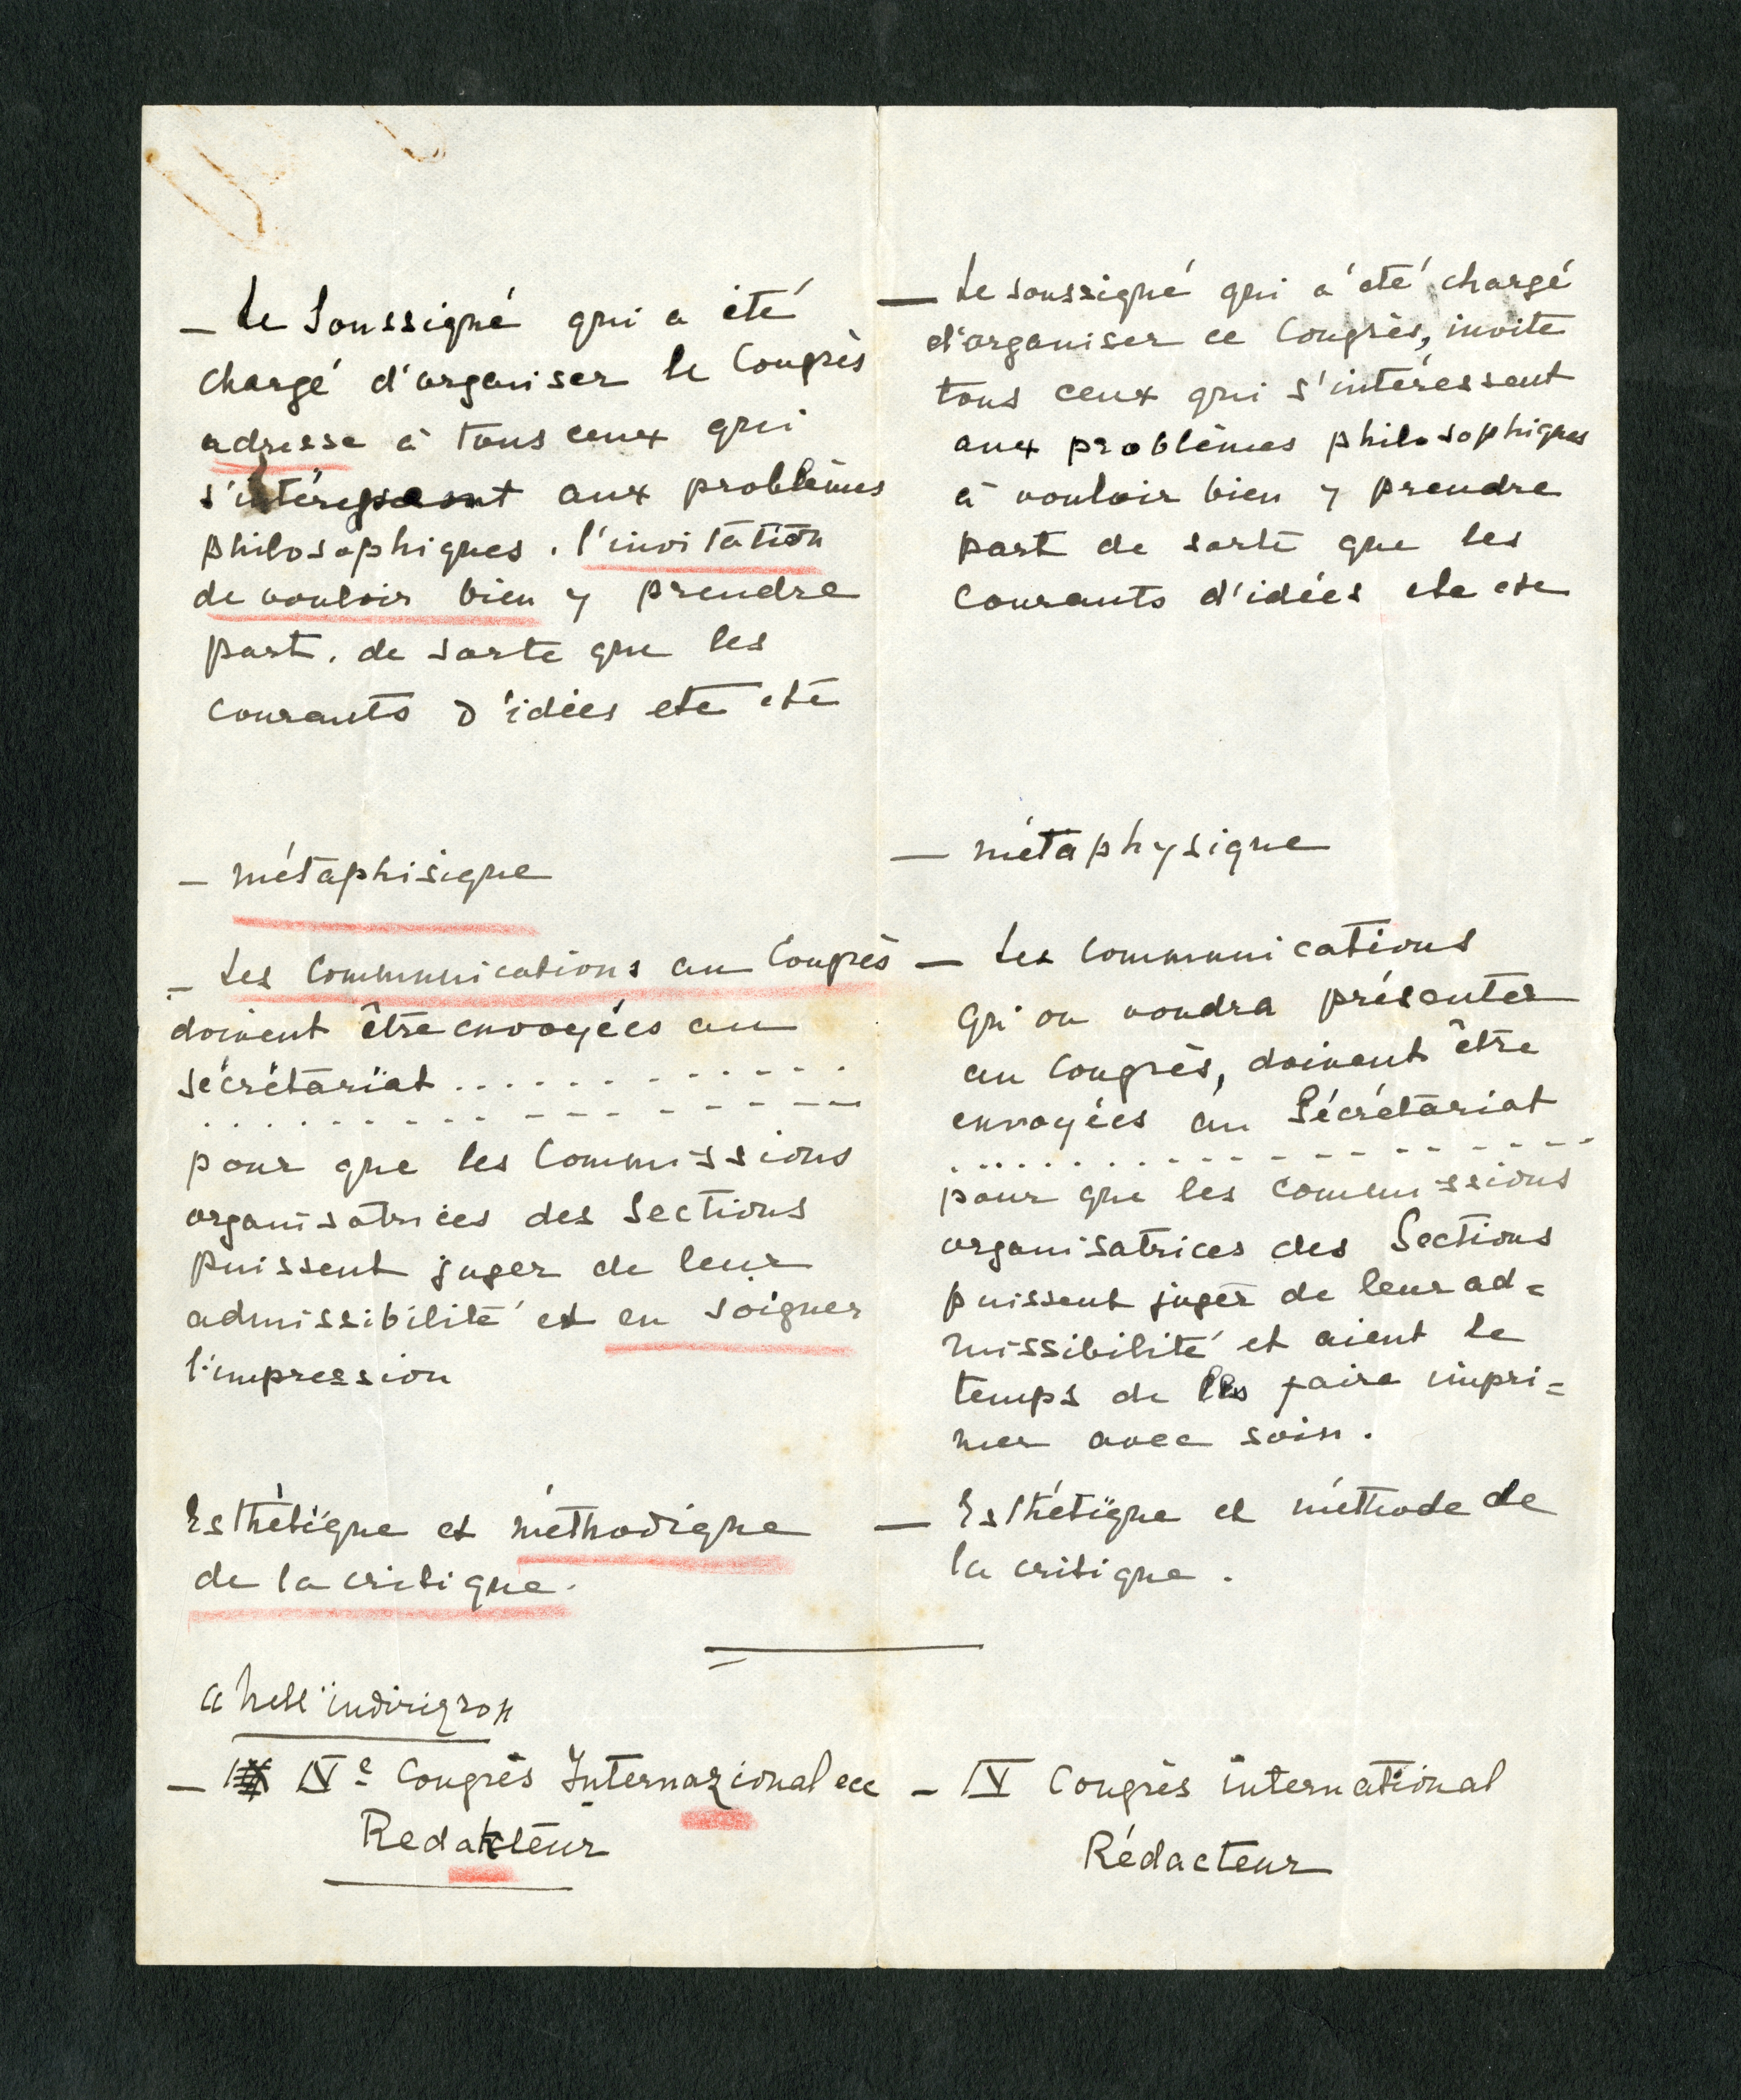 — Le Soussigné qui a été
chargé d'organiser le Congrès
adresse à tous ceux qui
s'intéressent aux problèmes
philosophiques. l'invitation
de vouloir bien y prendre
part. de sorte que les
courants d'idées etc etc
— métaphisique
— Les Communications au Congrès
doivent être envoyées au
sécrétariat . . . . . . . . . . .
. . . . . . . - - - - - - -
pour que les Commissions
organisatrices des Sections
puissent juger de leur
admissibilité et en soigner
l'impression
Esthétique et méthodique
de la critique.
— IVe Congrès Internazional ecc
Redakteur
— Le soussigné qui a été chargé
d'organiser ce Congrès, invite
tous ceux qui s'intéressent
aux problèmes philosophiques
à vouloir bien y prendre
part de sorte que les
courants d'idées etc etc
— métaphysique
— Les Communications
qu'on voudra présenter
au Congrès, doivent être
envoyées au Sécrétariat
. . . . . . . - - - - - - -
pour que les commissions
organisatrices des Sections
puissent juger de leur ad=
missibilité et aient le
temps de les faire impri=
mer avec soin.
— Esthétique et méthode de
la critique.
— IV Congrès international
Rédacteur